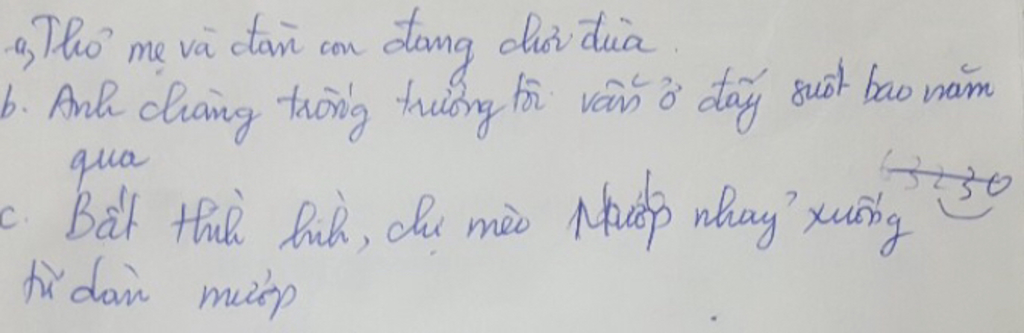 a, Thỏ mẹ và đàn con đang chơi đùa.
b. Anh chàng trống trường tôi vẫn ở đấy suốt bao năm
qua
63230
c. Bất thình lình, chị mèo Mướp nhảy xuống
từ dàn mướp